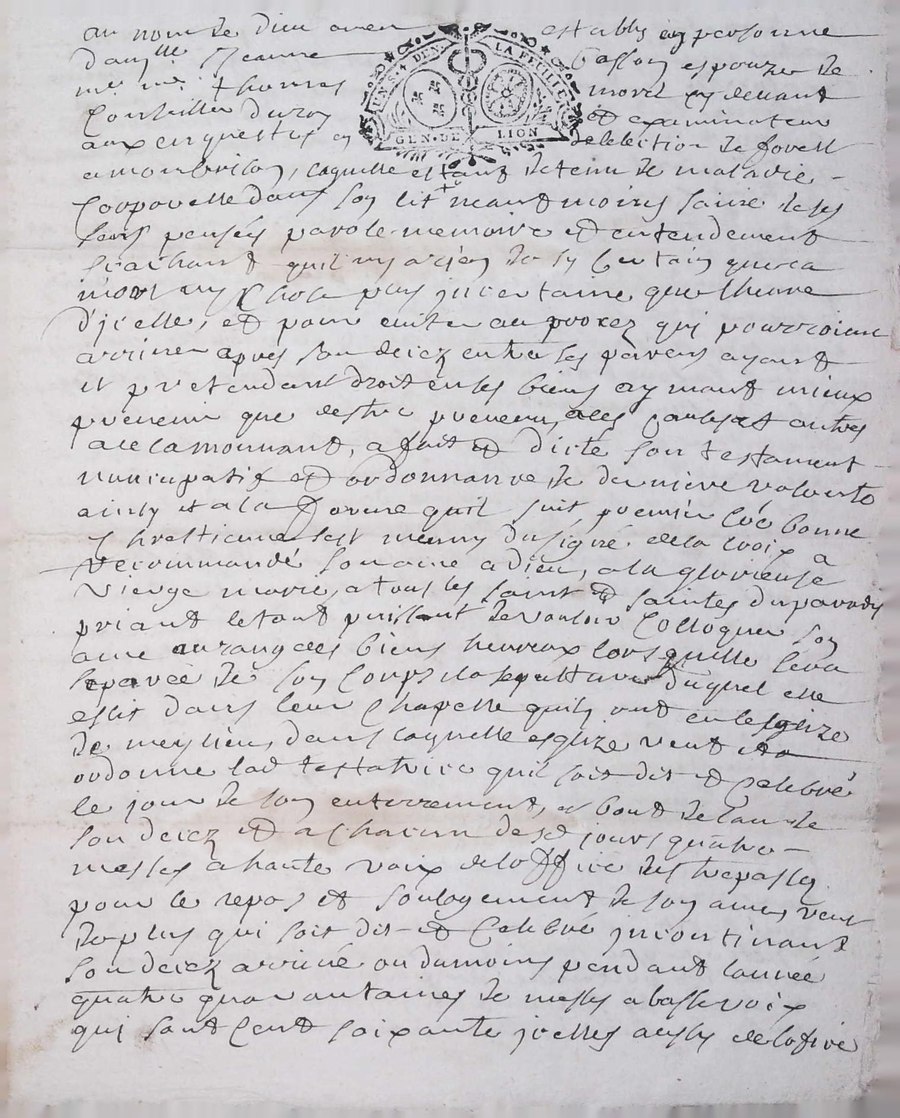 au nom de Dieu amen establis en personne
dam.lle Jeanne basson espouze de
me thomas morel vy devant
Conseiller du roy et examinateur
aux enquestes en delelection de forest
UN.S.4 DEN. LA FEUILLE
GEN.DE LION
a monbrison, laquelle estant detenu de maladie
Corporelle dans son lit neantmoins saine de ses
sens pensés parole memoire et entendement
scachant quil ny a rien de sy Certain que la
mort ny Chose plus jncertaine que lheure
d'jcelle, et pour eviter au procez qui pourroient
arriver apres son decez entre les parens ayant
et pretendant droit en ses biens aymant mieux
prevenir que destre prevenu, a ces Causes et autres
a ce la mouvant, a fait et dicté son testament
nuncupatif et ordonnance de derniere volonté
ainsy et a la forme quil suit premier Coe bonne
Chrestienne sest muny du signe de la Croix a
recommandé son ame a Dieu, a la glorieuse
Vierge marie, a tous les saint et saintes du paradis
priant le tout puissant de vouloir Colloquer son
ame au rang des biens heureux lors quelle sera
separée de son Corps la sepulture duquel elle
eslit dans leur Chapelle quils ont en lesglize
de meylieu, dans laquelle esglize veut et a
ordonne lad testatrice quil soit dit et Celebré
le jour de son enterrement, et bout de lan de
son decez et a chacun desd jours quatre
messes a haute voix de loffice des trepassés
pour le repos et soulagement de son ame, veut
de plus qui soit dit et Celebré jncontinant
son decez arrivé ou du moins pendant lannée
quatre quarantaines de messes a basse voix
qui sont Cent soixante jcelles aussy de lofice